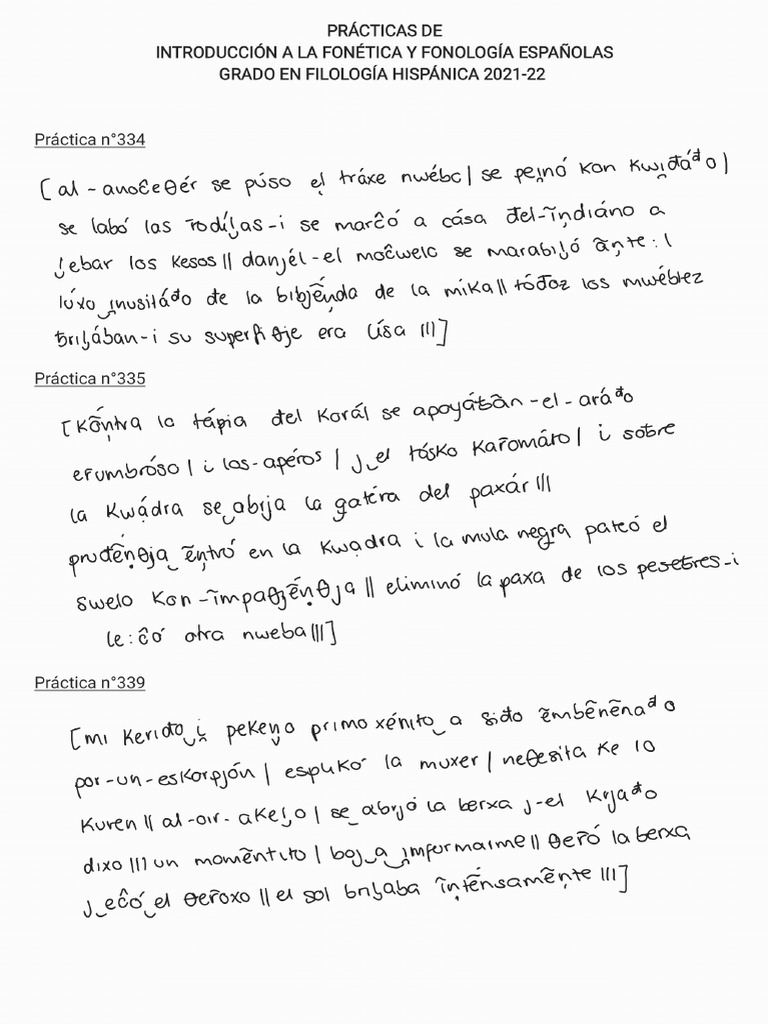 PRÁCTICAS DE
INTRODUCCIÓN A LA FONÉTICA Y FONOLOGÍA ESPAÑOLAS
GRADO EN FILOLOGÍA HISPÁNICA 2021-22
Práctica n°334
[al-anoĉeθér se púso el̯ tráxe nwébo| se pei̯nó kon kwi̯đáᵈo|
se labó las r̄odíl̬as-i se marĉó a cása đel-ĩn̯diáno a
l̬ebar los kesos|| danjél-el moĉwelo se marabil̬ó ãn̯te:l
lúxo‿i̯nusitáᵈo de la bibjẽ́n̯da de la mika|| tóđoz los mwéblez
ƀril̬ában-i su superfiθje era lísa |||]
Práctica n°335
[kṍn̯tra la tápia đel korál se apoyáƀãn-el-aráᵈo
erumbróso| i los-apéros| j‿el tósko kar̄omáto| i sobre
la kwáđra se‿abrija la gatéra del paxár|||
pruđẽ́n̟θja‿ẽn̯tró en la kwađra i la mula negra pateó el
swelo kon-ĩmpaθjẽ́n̟θja|| eliminó la paxa de los peseƀres-i
le:ĉó otra nweba|||]
Práctica n°339
[mi keriđo‿i̯ pekeņo primo xénito‿a siđo ẽmbẽnẽnaᵈo
por-un-eskorpjón| espukó la muxer| neθesita ke lo
kuren|| al-oir-akel̬o| se‿abrjó la berxa j-el krjaᵈo
dixo||| un momẽntito| boj‿a‿i̯mformarme|| θer̄ó la berxa
j‿eĉó‿el θer̄oxo|| el sol bril̬aba ĩn̯tẽ́nsamẽn̯te |||]